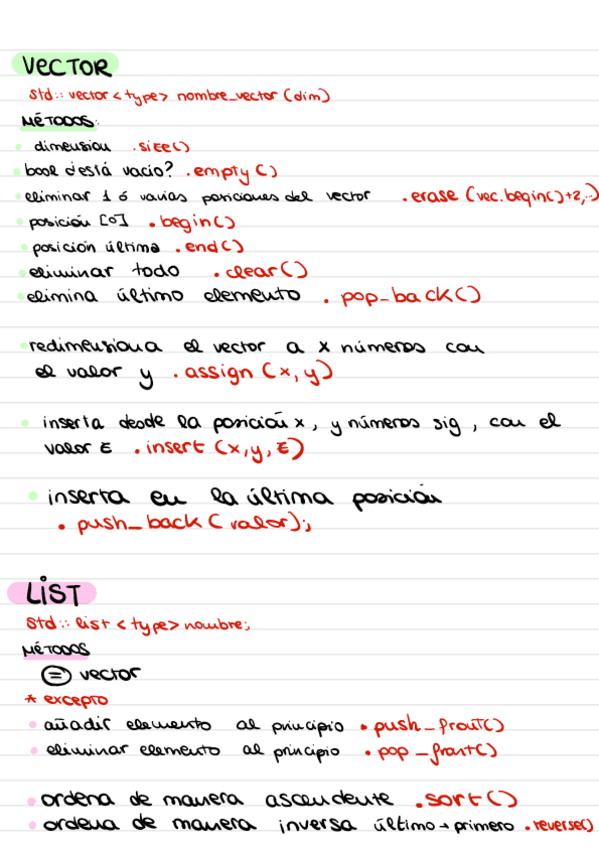 VECTOR
std::vector<type> nombre_vector (dim)
MÉTODOS:
dimension .size()
bool ¿está vacio? .empty()
eliminar 1 ó varias posiciones del vector .erase (vec.begin()+2,..)
posición [0] .begin()
posición última .end()
eliminar todo .clear()
elimina último elemento . pop_back()
redimensiona el vector a x números con
el valor y .assign (x, y)
inserta desde la posición x, y números sig, con el
valor z .insert (x,y,z)
inserta en la última posición
. push_back (valor);
LIST
std::list <type> nombre;
MÉTODOS
= vector
* excepto
añadir elemento al principio . push_front()
eliminar elemento al principio . pop_front()
ordena de manera ascendente .sort()
ordena de manera inversa último → primero .reverse()